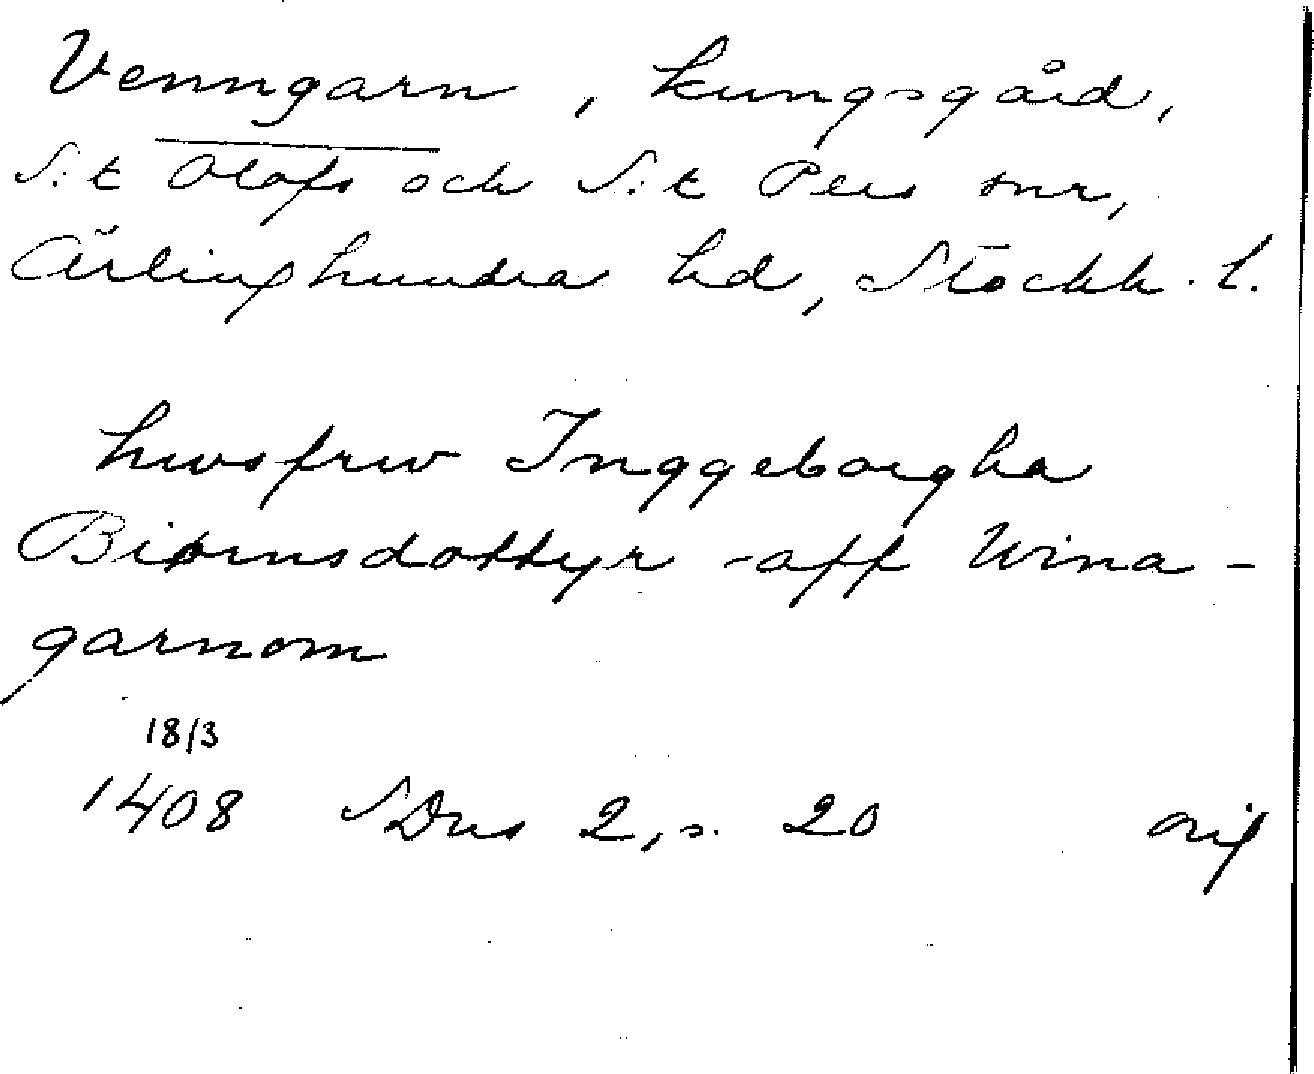 Venngarn, kungsgård,
S:t Olofs och S:t Pers snr,
Ärlinghundra hd, Stockh. l.
hwsfrw Inggeborgha
Biørnsdottyr -aff Wina-
garnom
18/3
1408 SDns 2, s. 20 orig